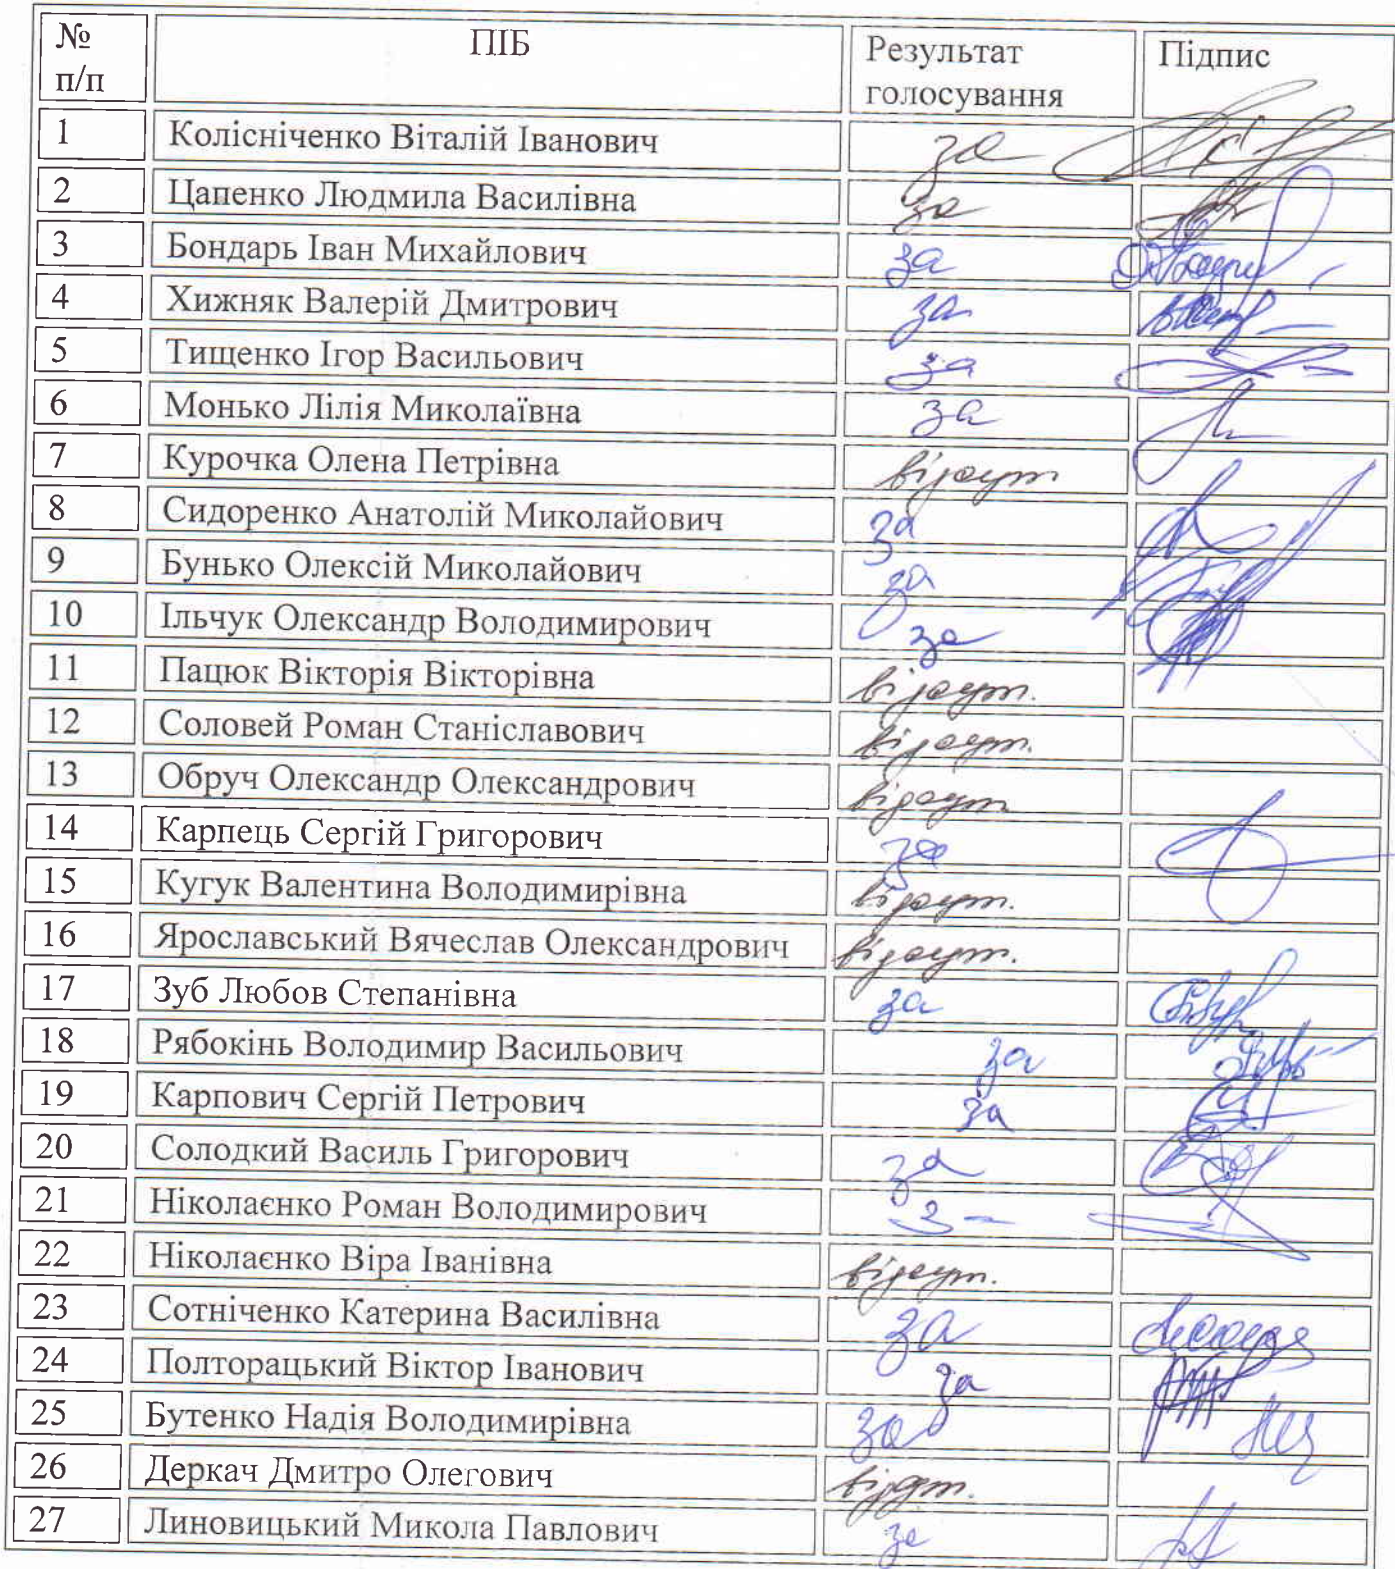 № п/п ПІБ Результат голосування Підпис
1 Колісніченко Віталій Іванович за
2 Цапенко Людмила Василівна за
3 Бондарь Іван Михайлович за
4 Хижняк Валерій Дмитрович за
5 Тищенко Ігор Васильович за
6 Монько Лілія Миколаївна за
7 Курочка Олена Петрівна відсут
8 Сидоренко Анатолій Миколайович за
9 Бунько Олексій Миколайович за
10 Ільчук Олександр Володимирович за
11 Пацюк Вікторія Вікторівна відсут.
12 Соловей Роман Станіславович відсут.
13 Обруч Олександр Олександрович відсут
14 Карпець Сергій Григорович за
15 Кугук Валентина Володимирівна відсут.
16 Ярославський Вячеслав Олександрович відсут.
17 Зуб Любов Степанівна за
18 Рябокінь Володимир Васильович за
19 Карпович Сергій Петрович за
20 Солодкий Василь Григорович за
21 Ніколаєнко Роман Володимирович
22 Ніколаєнко Віра Іванівна відсут.
23 Сотніченко Катерина Василівна за
24 Полторацький Віктор Іванович за
25 Бутенко Надія Володимирівна за
26 Деркач Дмитро Олегович відсут.
27 Линовицький Микола Павлович за